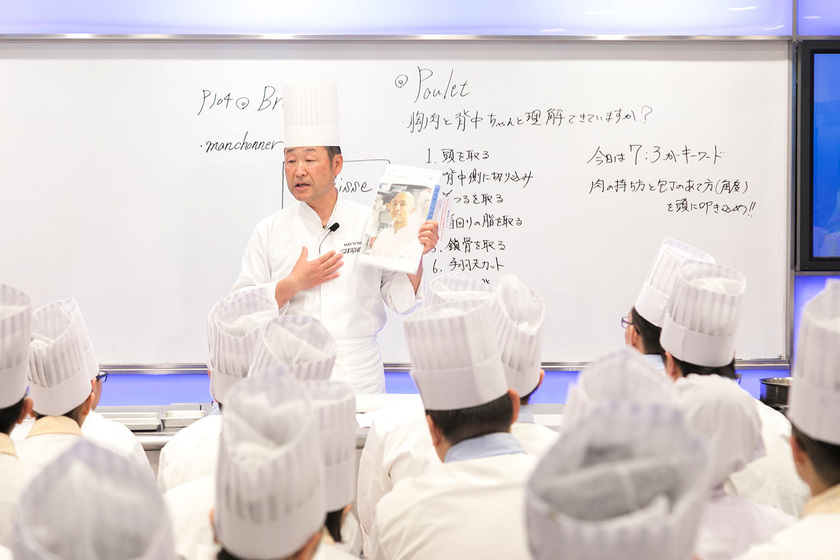 Plat ◎
・manchonner
◎ Poulet
・胸肉と背中ちゃんと理解できていますか？
1. 頭を取る
背中側に切り込み
つるを取る
首回りの脂を取る
鎖骨を取る
6. 手羽元カット
今日は7:3がキーワード
肉の持ち方と包丁のあて方(角度)
を頭に叩き込め!!